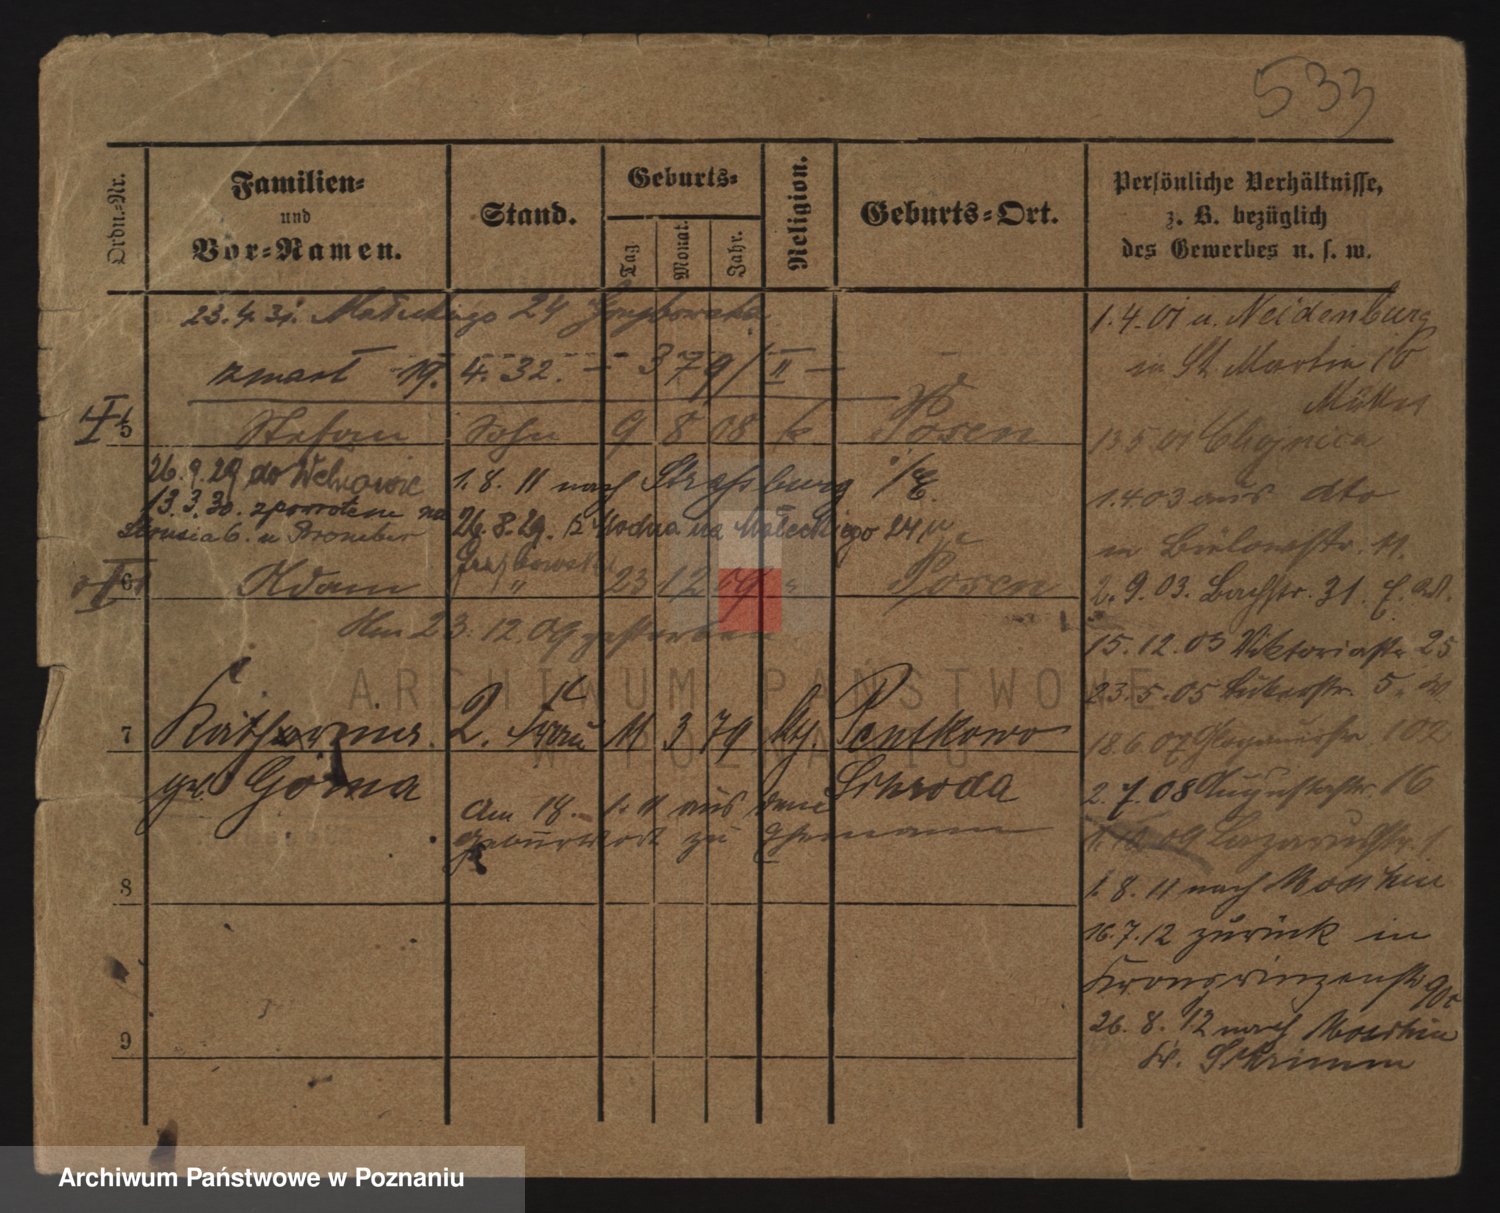 533
Ordn.-Nr.
Familien-
und
Vor-Namen.
Stand.
Geburts-
Tag
Monat.
Jahr.
Religion.
Geburts-Ort.
Persönliche Verhältnisse,
z. B. bezüglich
des Gewerbes u. s. w.
23. 4. 31. Małeckiego 24
zmarł 19. 4. 32. - 379/II -
5 Stefan Sohn 9 8 08 k Posen
26. 9. 29 do
1. 8. 11 nach Strassburg i/E.
13. 3. 30. z powrotem na
Strusia 6. u
26. 8. 29. z na Małeckiego 24
6 Adam " 23 12 09 " Posen
Am 23. 12. 09 gestorben
7 Katharina 2. Frau 11 3 79 Pentkowo
geb Górna Schroda
Am 18. 1. 11 aus dem
Geburtsort zu Ehemann
8
9
1. 4. 01 u. Neidenburg
in St Martin 16
13.5.01 Chojnica
1.4.03 aus dto
in 11.
2. 9. 03. Bachstr. 31.
15. 12. 03 Viktoriastr 25
23. 5. 05 5.
18.6.07 Glogauerstr 102
2. 7. 08 Augustastr. 16
1. 10. 09 Lazarusstr. 1
1. 8. 11 nach Moschin
16. 7. 12 zurück in
Kronprinzenstr 90
26. 8. 12 nach Moschin
Kr. Schrimm
ARCHIWUM PAŃSTWOWE
W POZNANIU
Archiwum Państwowe w Poznaniu